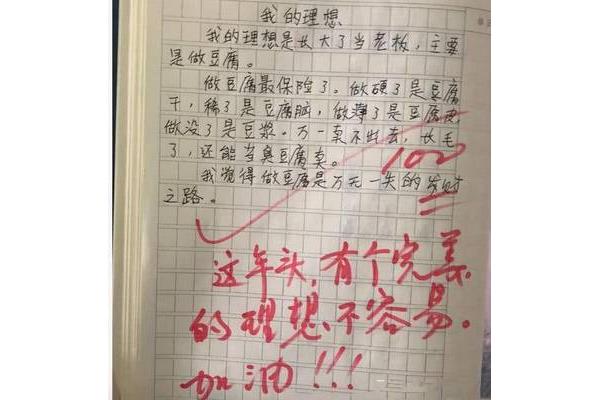 我的理想
我的理想是长大了当老板，主要
是做豆腐。
做豆腐最保险了。做硬了是豆腐
干，稀了是豆腐脑，做薄了是豆腐皮
做没了是豆浆。万一卖不出去，长毛
了，还能当臭豆腐卖。
100
我觉得做豆腐是万无一失的发财
之路。
这年头，有个完美
的理想不容易。
加油!!!